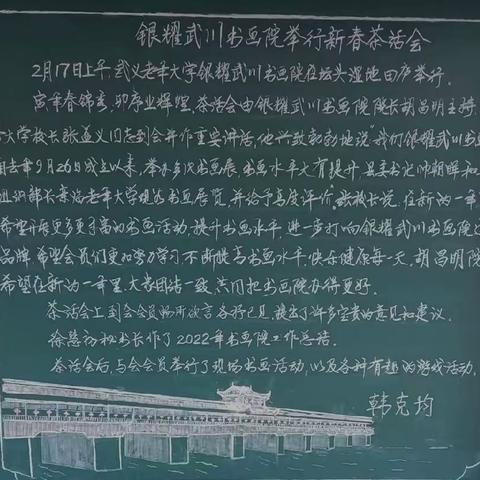 银耀武川书画院举行新春茶话会
2月17日上午,武义老年大学银耀武川书画院在坛头湿地田庐举行.
寅年春锦秀,卯序业辉煌.茶话会由银耀武川书画院院长胡昌明主持.
大学校长张益义同志到会并作重要讲话,他兴致勃勃地说"我们银耀武川书画
自去年9月26日成立以来,举办多次书画展,书画水平大有提升,县委书记帅朝晖和
组织部长亲临老年大学现场书画展览,并给予高度评价."张校长说,在新的一年
希望开展更多更丰富的书画活动,提升书画水平,进一步打响银耀武川书画院
品牌.希望会员们更加努力学习,不断提高书画水平,快乐健康每一天.胡昌明院
希望在新的一年里,大家团结一致,共同把书画院办得更好.
茶话会上到会会员畅所欲言,各抒己见,提出了许多宝贵的意见和建议.
徐慧初秘书长作了2022年书画院工作总结.
茶话会后,与会会员举行了现场书画活动,以及各种有趣的游戏活动.
韩克均